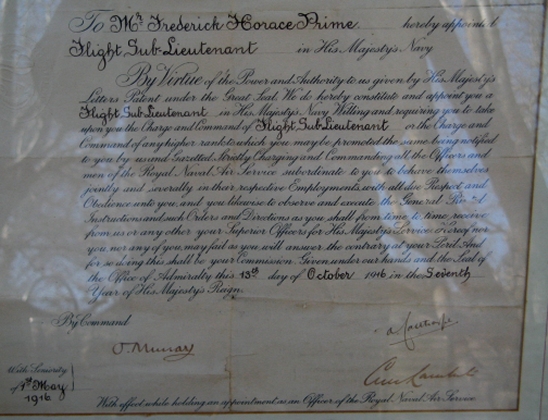 To Mr. Frederick Horace Prime hereby appointed
Flight Sub-Lieutenant in His Majesty's Navy
By Virtue of the Power and Authority to us given by His Majesty's
Letters Patent under the Great Seal, We do hereby constitute and appoint you a
Flight Sub-Lieutenant in His Majesty's Navy Willing and requiring you to take
upon you the Charge and Command of Flight Sub-Lieutenant or the Charge and
Command of any higher rank to which you may be promoted the same being notified
to you by us and Gazetted, Strictly Charging and Commanding all the Officers and
men of the Royal Naval Air Service subordinate to you to behave themselves
jointly and severally in their respective Employments, with all due Respect and
Obedience unto you, and you likewise to observe and execute the General
Instructions and such Orders and Directions as you shall from time to time receive
from us or any other your Superior Officers for His Majesty's Service. Hereof nor
you nor any of you may fail as you will answer the contrary at your Peril. And
for so doing this shall be your Commission. Given under our hands and the Seal of
the Office of Admiralty this 13th day of October 1916 in the Seventh
Year of His Majesty's Reign.
By Command
O. Murray
With Seniority
of 1st May
1916
With effect while holding an appointment as an Officer of the Royal Naval Air Service